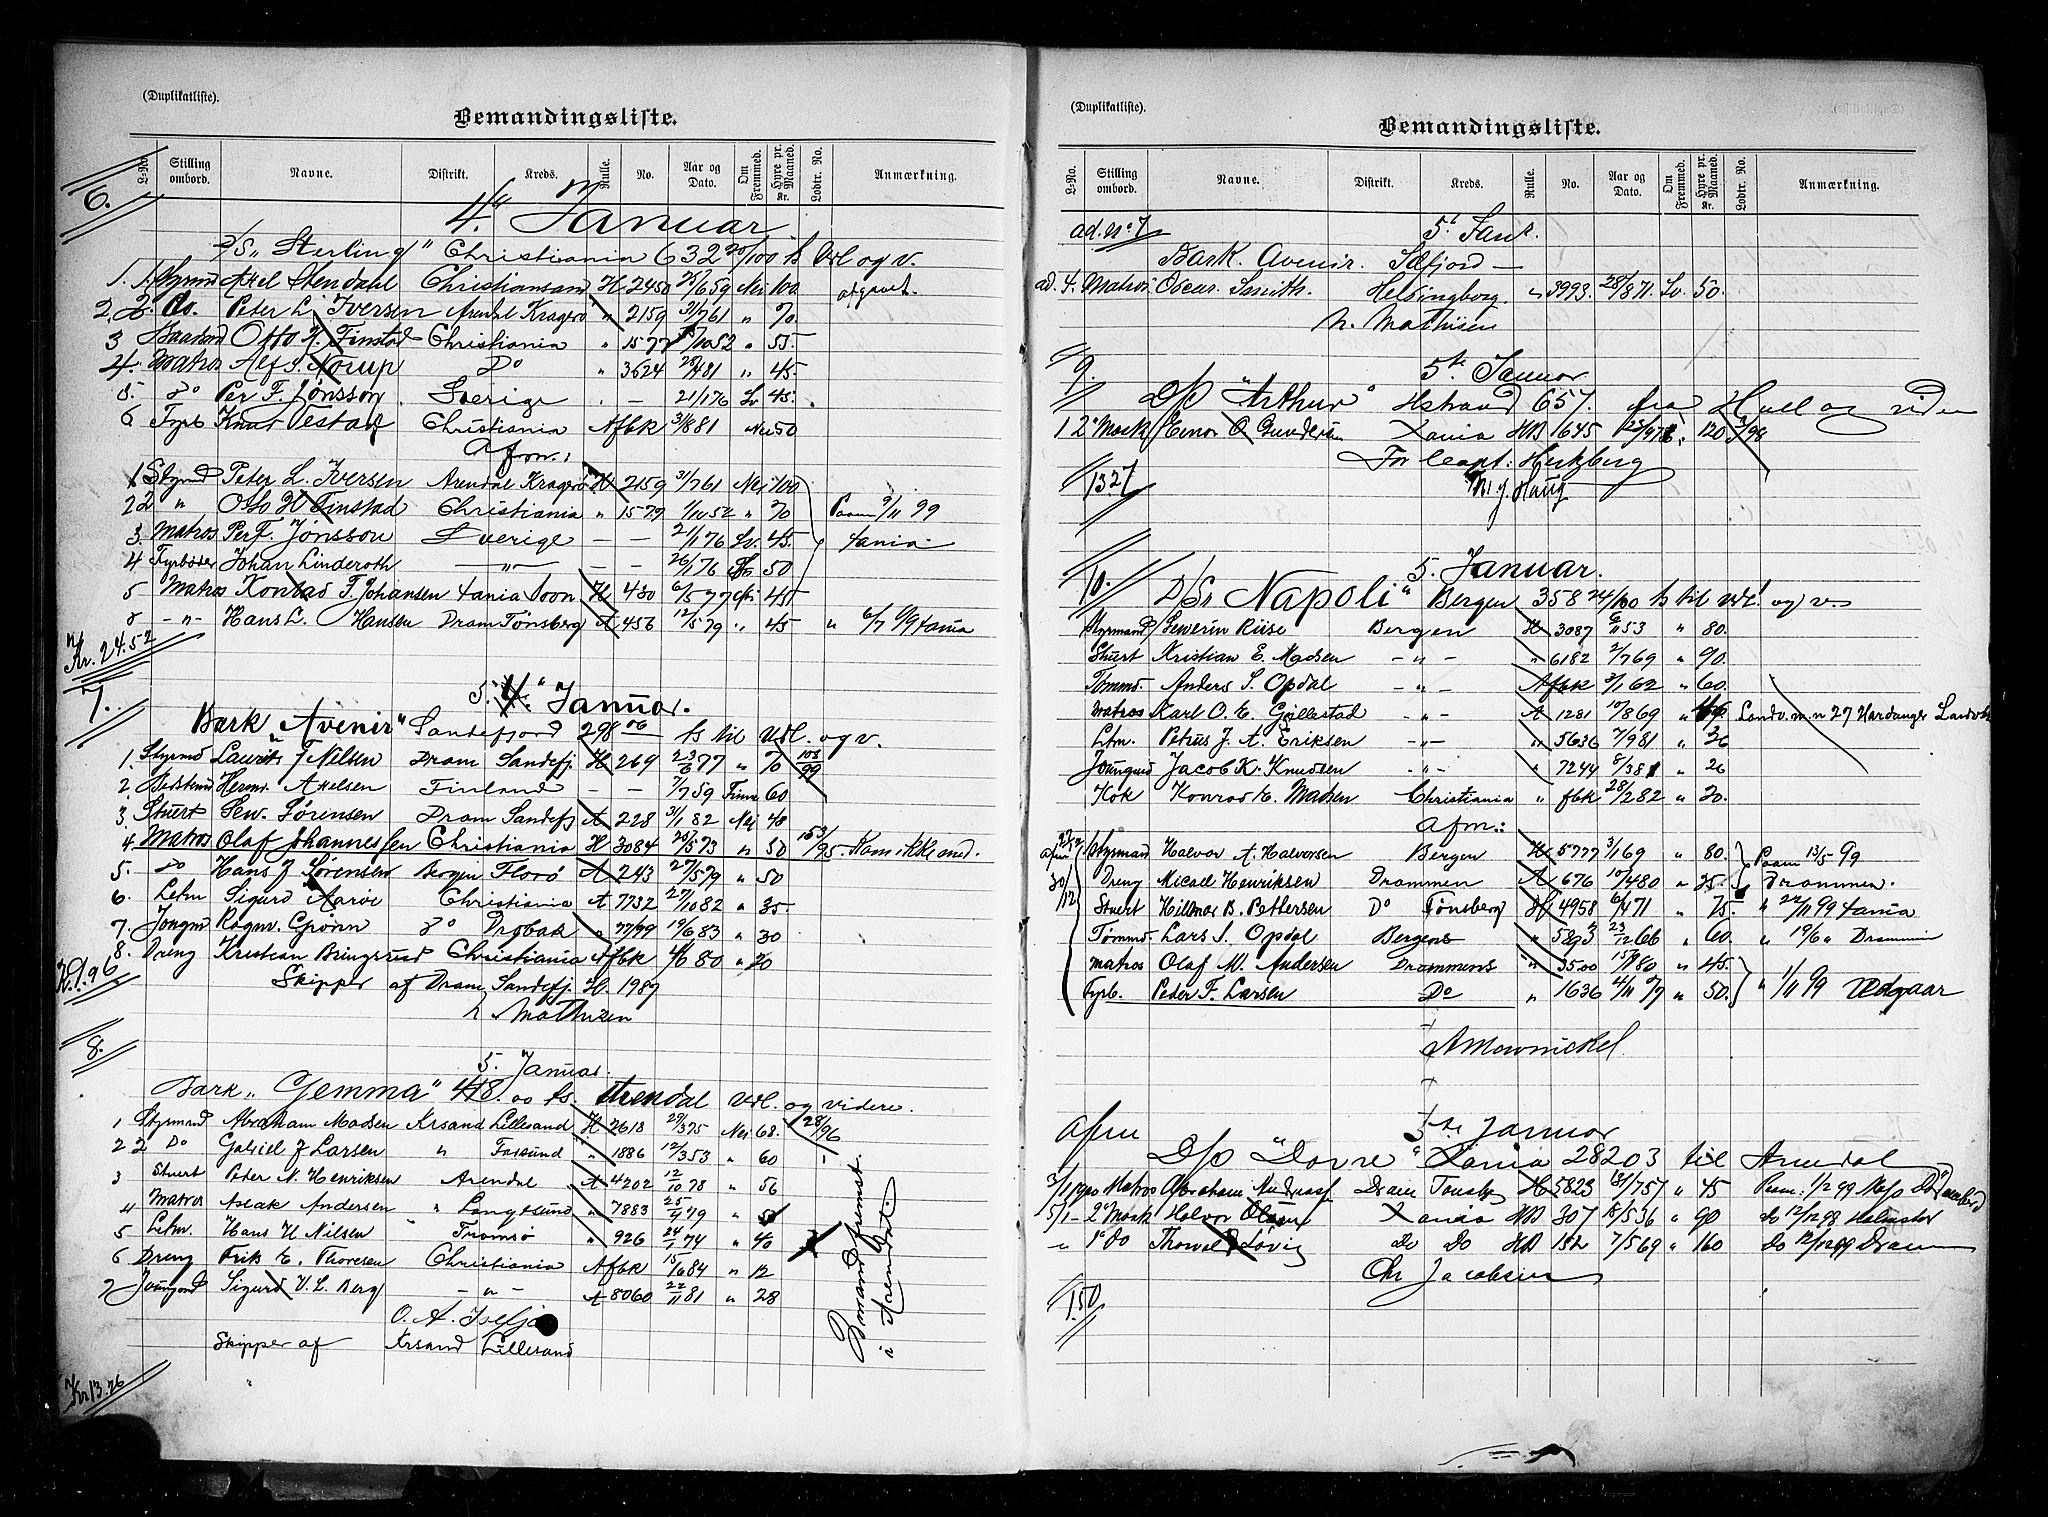 (Duplikatliste).
Bemandingsliste.
L-No. Stilling ombord. Navne. Distrikt. Kreds. Rulle. No. Aar og Dato. Om Fremmed. Hyre pr. Maaned. Kr. Lodtr. No. Anmærkning.
6.
4. Januar
D/S. "Sterling" Christiania 632 20/100 ts Udl og v.
1. Styrmd Axel Stendahl Christiansand H 2450 /659 Nei 100 afgaaet.
2. do. Peter L. Iversen Arendal Kragerø " 2159 31/761 " 70
3 Baadsmd Otto H. Finstad Christiania " 1577 /1052 " 55
4. Matros Alf S. Norup Do " 3624 /481 " 45
5. Do Per F. Jønsson Sverige . — 21/176 Sv 45.
6 Fyrb Knut Testad Christiania Afbk 31/881 Nei 50
Afm.
1 Styrmd Peter L. Iversen Arendal Kragerø H 2159 31/761 Nei 100
2 2 " Otto H Finstad Christiania " 1579 1/1052 " 70 Paam 9/11 99
3. Matros Per F. Jønsson Sverige — — 21/176 Sv. 45. Xania
4 Fyrbøder Johan Linderoth —"— — — 26/176 50
5 Matros Konrad F. Johansen Xania Soon H 430 6/577 Nei 45
8 —"— Hans L. Hansen Dram Tønsberg A 456 12/579 " 45 " 6/7 99 Xania
Kr. 24.52
7.
5. Januar.
Bark "Avenir" Sandefjord 298 06 ts til Udl. og v.
1. Styrmd Laurits F Nilsen Dram Sandefj. H 269 23/6 77 " 70 108/99
2 Bedstemd Herm. Axelsen Finland — — 7/759 Finne 60
3. Stuert Sew. Sørensen Dram Sandefj A 228 31/182 Nei 40
4. Matros Olaf Johannessen Christiania H 3084 20/573 " 50 153/95 Kom ikke med.
5. Do Hans J Sørensen Bergen Florø A 243 27/579 " 50
6. Letm Sigurd Aarøe Christiania A 7732 27/1082 " 35.
7. Jongmd Ragnv. Grønn Do Drøbak " 77/99 19/683 " 30
8. Dreng Kristian Bringsrud Christiania Afbk 80 " 20
Kr. 1.96
Skipper af Dram Sandefj. H. 1987
Mathisen
8.
5. Januar.
Bark "Gemma" 418.00 ts. Arendal Udl. og videre.
1 Styrmand Abraham Madsen Krsand Lillesand H 2618 29/375 Nei 68. 128/96
2 2 Do Gabriel J Larsen " Farsund " 1886 12/353 " 60
3 Stuert Peder N. Henriksen Arendal A 4202 12/10 78 " 56
4 Matros Aslak Andersen " Langesund " 7883 25/4 79 " 50
5 Letm. Hans H Nilsen " Tromsø " 926 24/1 74 " 40
6 Dreng Frik E. Thoresen Christiania Afbk 15/1684 " 12
7 Joungmd Sigurd V. L. Berg —"— A 8060 22/11 81 " 28
i Arendal
O. A.
Skipper af Krsand Lillesand
Kr 13.76
(Duplikatliste).
Bemandingsliste.
L-No. Stilling ombord. Navne. Distrikt. Kreds. Rulle. No. Aar og Dato. Om Fremmed. Hyre pr. Maaned. Kr. Lodtr. No. Anmærkning.
ad. No 7 5. Janr.
Bark. Avenir. Sdefjord —
ad. 4. Matros Oscar Smith. Helsingborg. " 3993 28/871. Sv. 50.
N. Mathisen
9.
5te Januar
D/S "Arthur" Hstrand 657. fra Hull og viden
1 2 Mask Einar O Gundersen Xania HB 1645 " 120 3/98
For Capt: Hertzberg
M. J. Haug
13.27
10.
5. Januar.
D/Sr "Napoli" Bergen 358 24/100 ts til Udl. og v.
Styrmand Severin Riise Bergen H 3087 53 " 80.
Stuert Kristian E. Madsen —"— " 6182 2/769 " 90.
Tømmd. Anders S. Opdal —"— Afbk 3/162 " 60.
Matros Karl O. E. Gjellestad —"— A 1281 10/869 " Landv. m. n 27 Hardanger Landv
Letm. Petrus J. A. Eriksen —"— " 5636 7/981 " 36
Joungmd Jacob K. Knudsen —"— " 7244 8/381 " 26
Kok Konrad E. Madsen Christiania " fbk 28/282 " 20.
Afm.:
Styrmand Halvor A. Halvorsen Bergen H 5777 3/169 " 80. Paam 13/5 99
Dreng Micael Henriksen Drammen A 676 10/480 " 25. Drammen.
Stuert Hilmar B. Pettersen Do Tønsberg H 4958 6/471 " 75. " 22/11 99 Xania
Tømmd. Lars S. Opdal Bergens " 5893 23/12 66 " 60. " 19/6 " Drammen
Matros Olaf M. Andersen Drammens " 3500 80 " 45.
Fyrb. Peder F. Larsen Do " 1636 4/11 79 " 50. " 1/11 99 Vedgaar
A Mowinckel
Afm
5te Januar
D/S "Dovre" Xania 282 03 til Arendal
Matros Abraham Andreass Dram Tønsbg H 5823 18/757 " 45 Paam: 1/2 99
5/1 — 2 Mask Halvor Olsen Xania HB 307 18/536 " 90 do 12/12 98
" 1 do Thorvald Løvig Do Do HB 152 7/569 " 160 Do 12/12 99 Dram
Chr Jacobsen
1.50